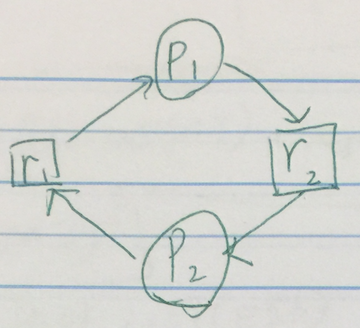 P₁
r₁
r₂
P₂